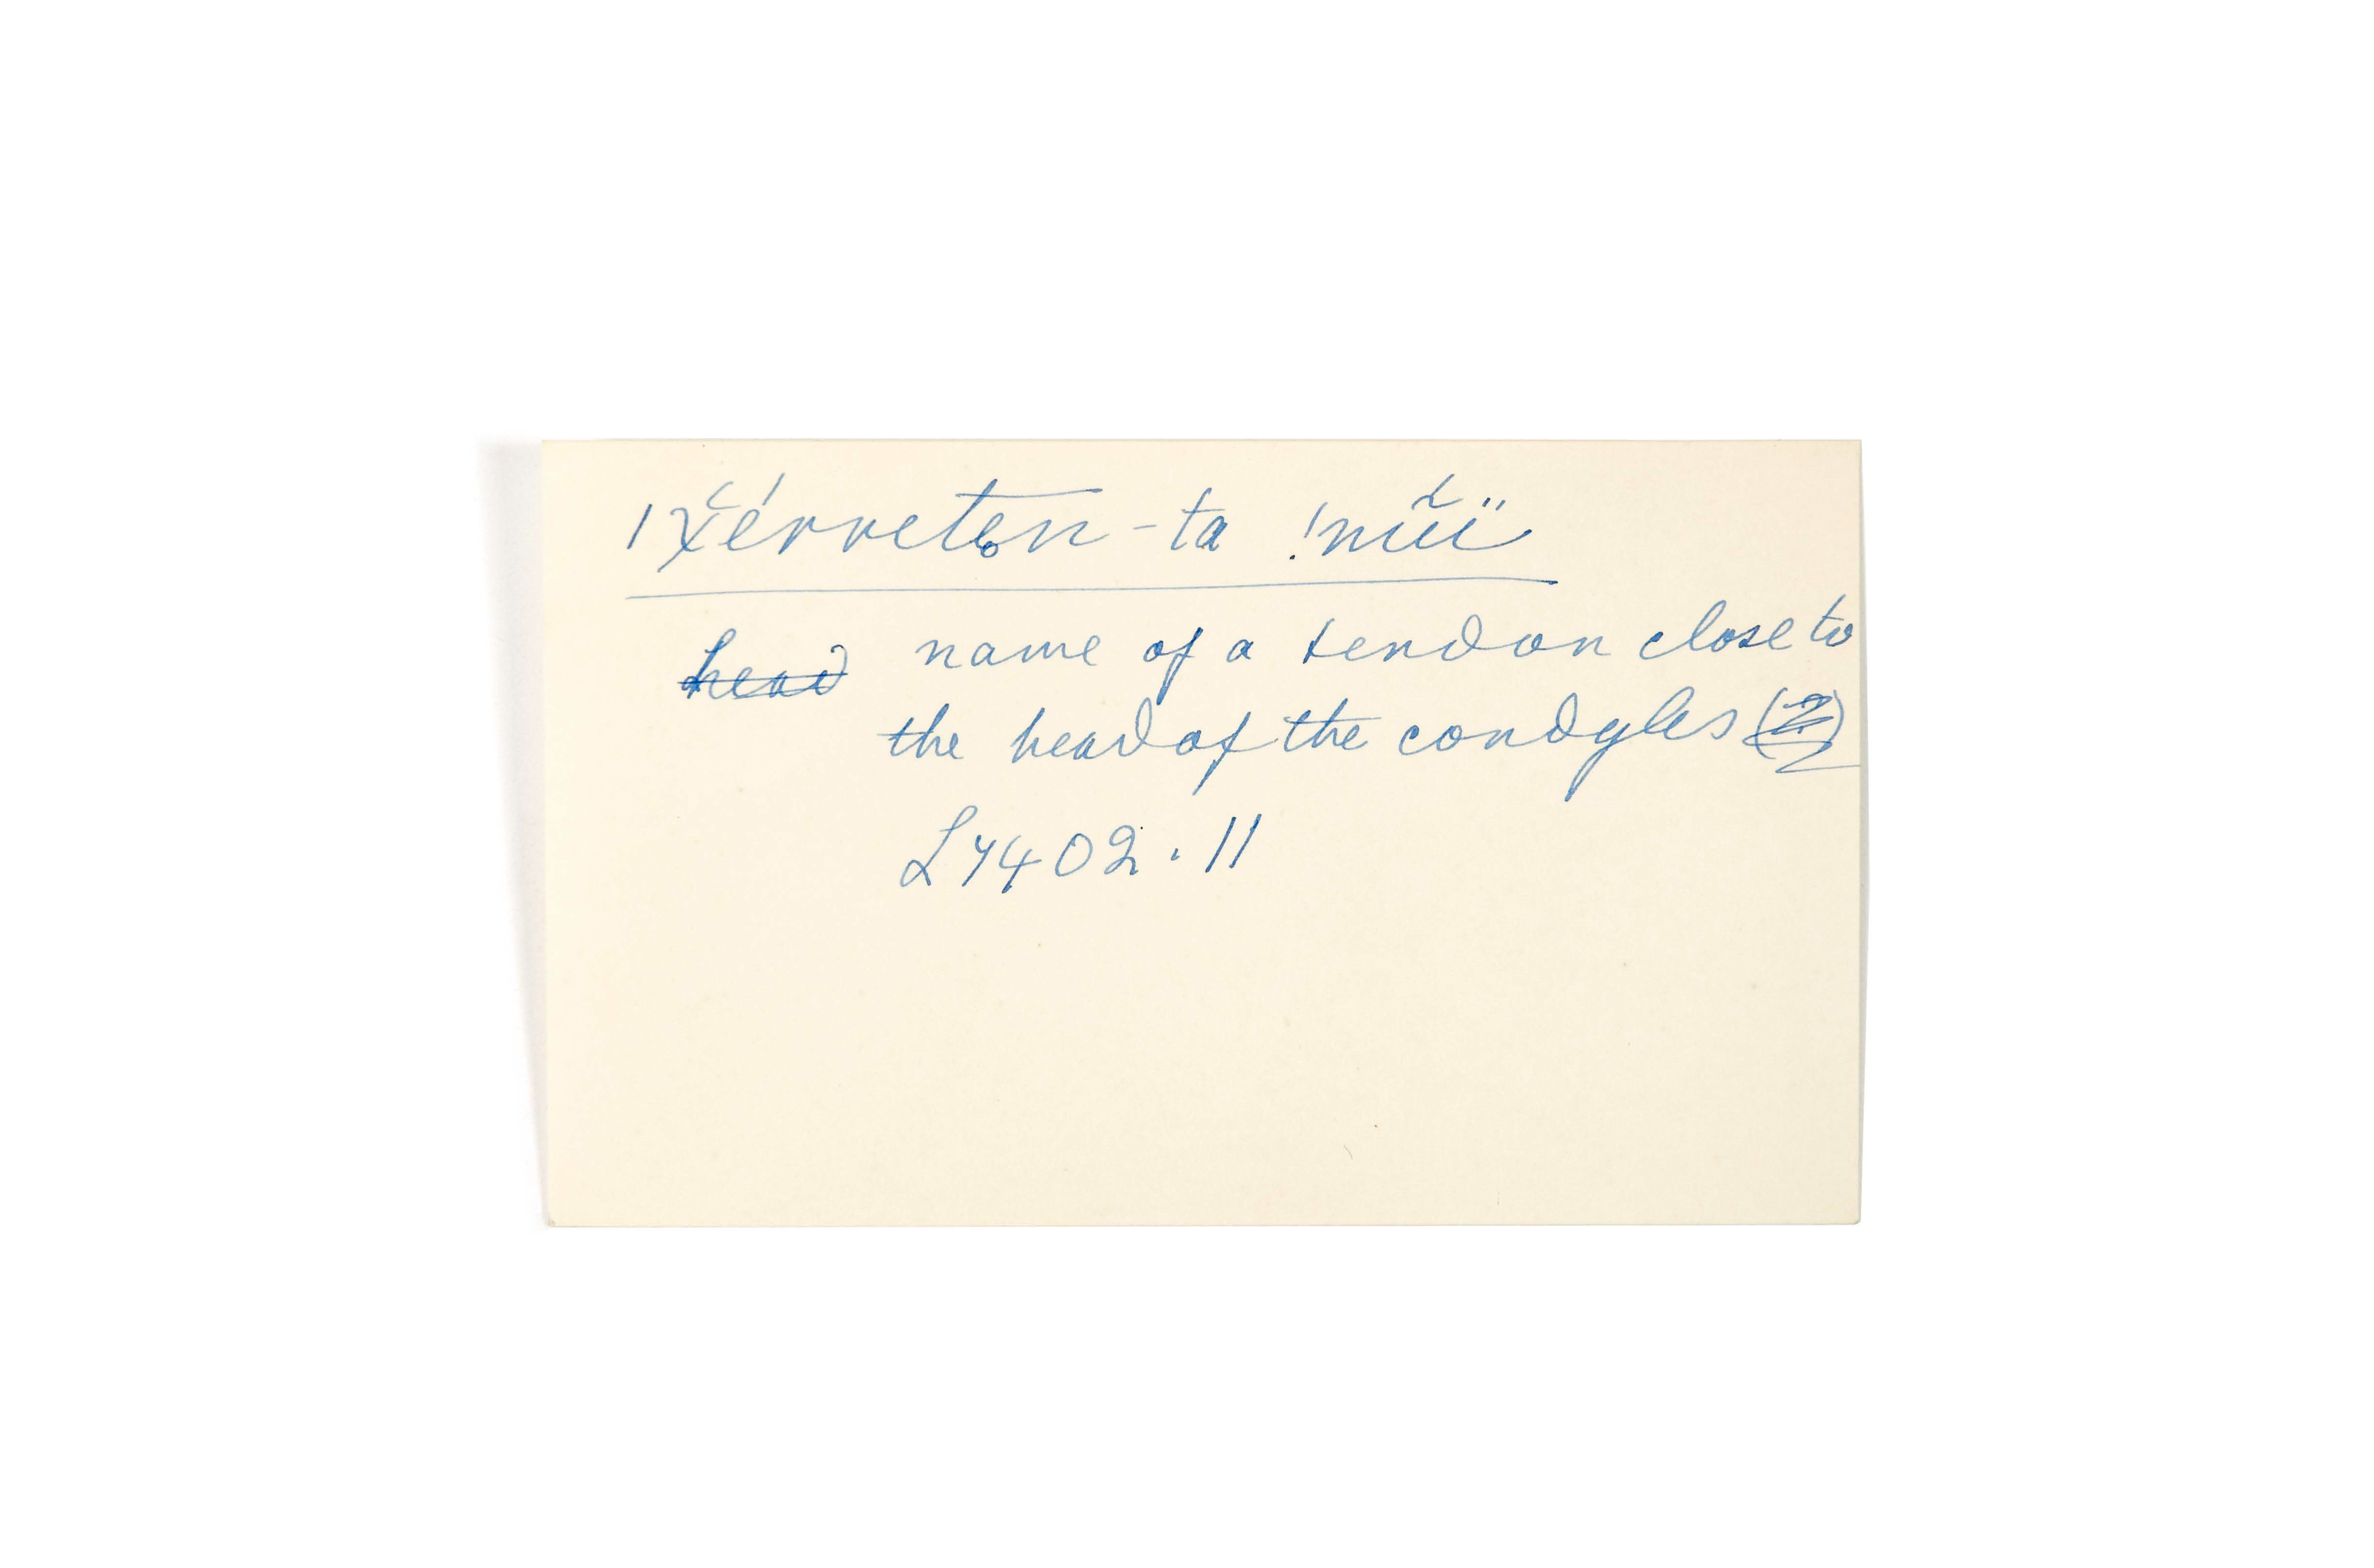 ǀχĕ́rreten̥-ta !nŭï
name of a tendon close to
the head of the condyles
L7402.11